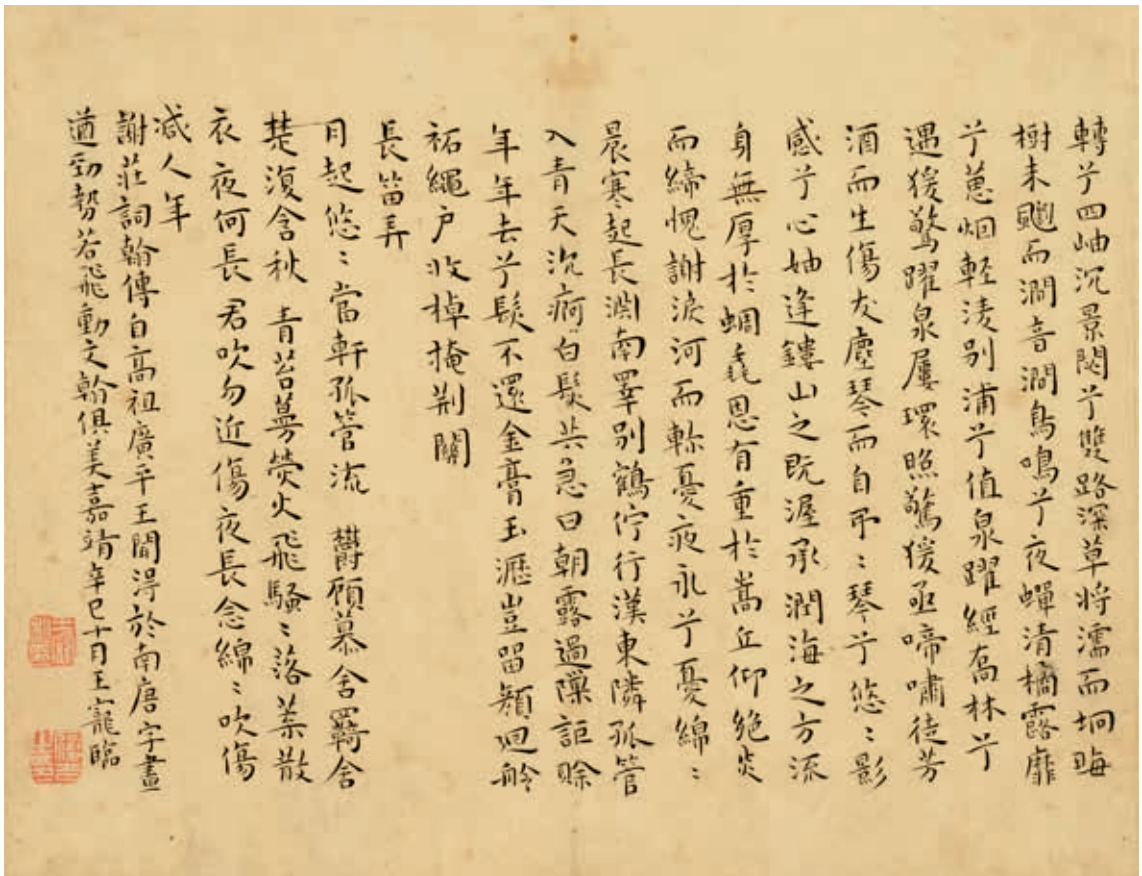 轉兮四岫沉景閟兮雙路深草將濡而坰晦
樹未颸而澗音澗鳥鳴兮夜蟬清橘露靡
兮蕙烟輕淩別浦兮值泉躍經喬林兮
遇猨驚躍泉屢環照驚猨亟啼嘯徒芳
酒而生傷友塵琴而自弔〻琴兮悠〻影
感兮心妯逢鏤山之既渥承潤海之方流
身無厚於蜩毳恩有重於嵩丘仰絶炎
而締愧謝淚河而軫憂夜永兮憂綿〻
晨寒起長淵南睪別鶴佇行漢東隣孤管
入青天沉痾白髮共急日朝露過隟詎賒
年年去兮髮不還金膏玉瀝豈留顏迴舲
祏繩户收棹掩荆關
長笛弄
月起悠〻當軒孤管流 鬱顧慕含羈含
楚復含秋 青苔蔓熒火飛騷〻落葉散
衣夜何長君吹勿近傷夜長念綿〻吹傷
減人年
謝莊詞翰傳自高祖廣平王閒淂於南唐字畫
遒勁勢若飛動文翰俱美嘉靖辛巳十月王寵臨